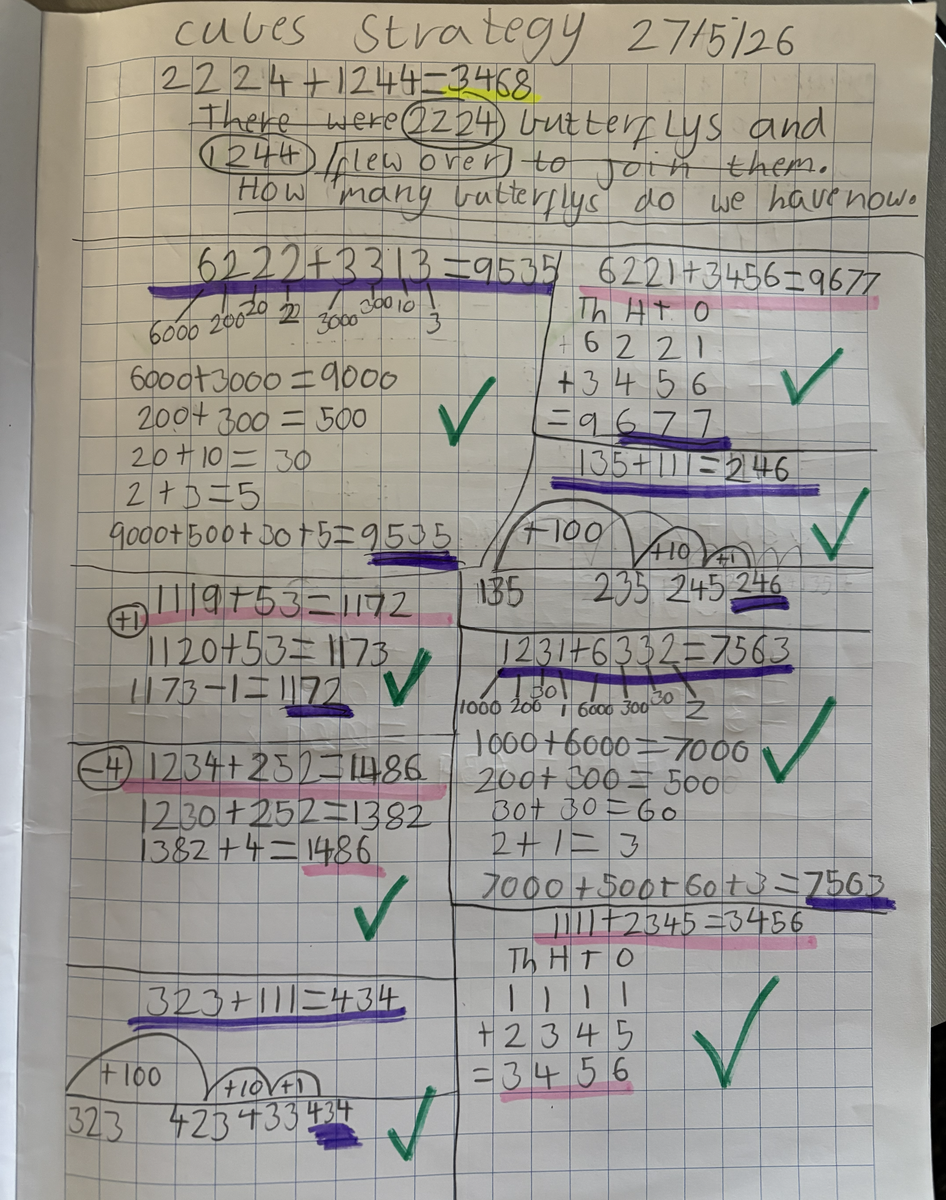 cubes strategy 27/5/26
2224+1244=3468
There were 2224 butterflys and
1244 flew over to join them.
How many butterflys do we have now.
6222+3313=9535
6000 200 20 2 3000 300 10 3
6000+3000=9000
200+300=500
20+10=30
2+3=5
9000+500+30+5=9535
6221+3456=9677
Th H T O
6 2 2 1
+3 4 5 6
=9 6 7 7
135+111=246
+100 +10 +1
135 235 245 246
+1 1119+53=1172
1120+53=1173
1173-1=1172
1231+6332=7563
1000 200 30 1 6000 300 30 2
1000+6000=7000
200+300=500
30+30=60
2+1=3
7000+500+60+3=7563
-4 1234+252=1486
1230+252=1382
1382+4=1486
1111+2345=3456
Th H T O
1 1 1 1
+2 3 4 5
=3 4 5 6
323+111=434
+100 +10 +1
323 423 433 434